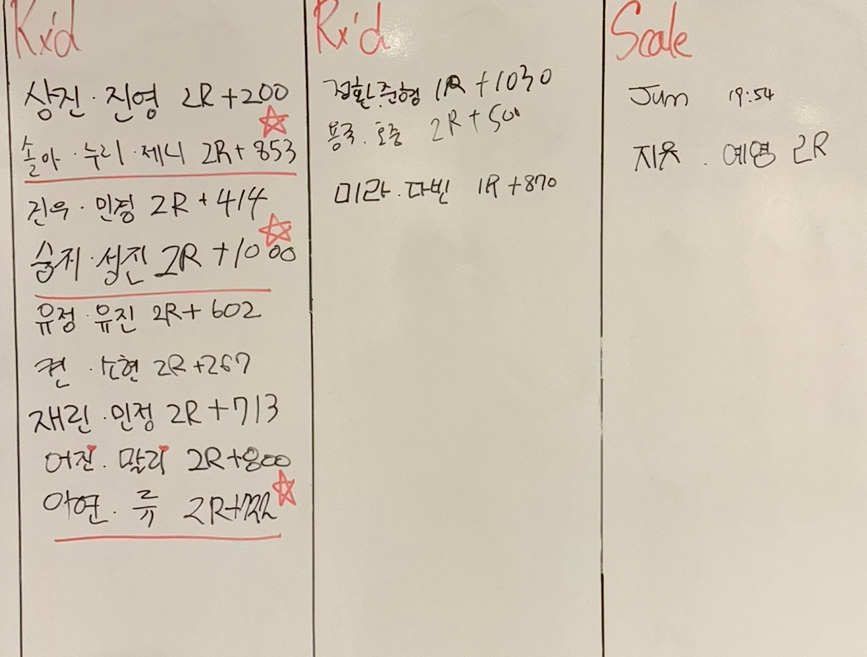 Rx'd
상진·진영 2R+200
솔아·누리·제니 2R+853
진우·민정 2R+414
승지·섭진 2R+1000
유정·유진 2R+602
켠·소현 2R+267
재린·민정 2R+713
어진·말리 2R+800
아연·류 2R+722
Rx'd
정환·준형 1R+1030
용국·호중 2R+500
미라·다빈 1R+870
Scale
Jun 19:54
지윳·예영 2R